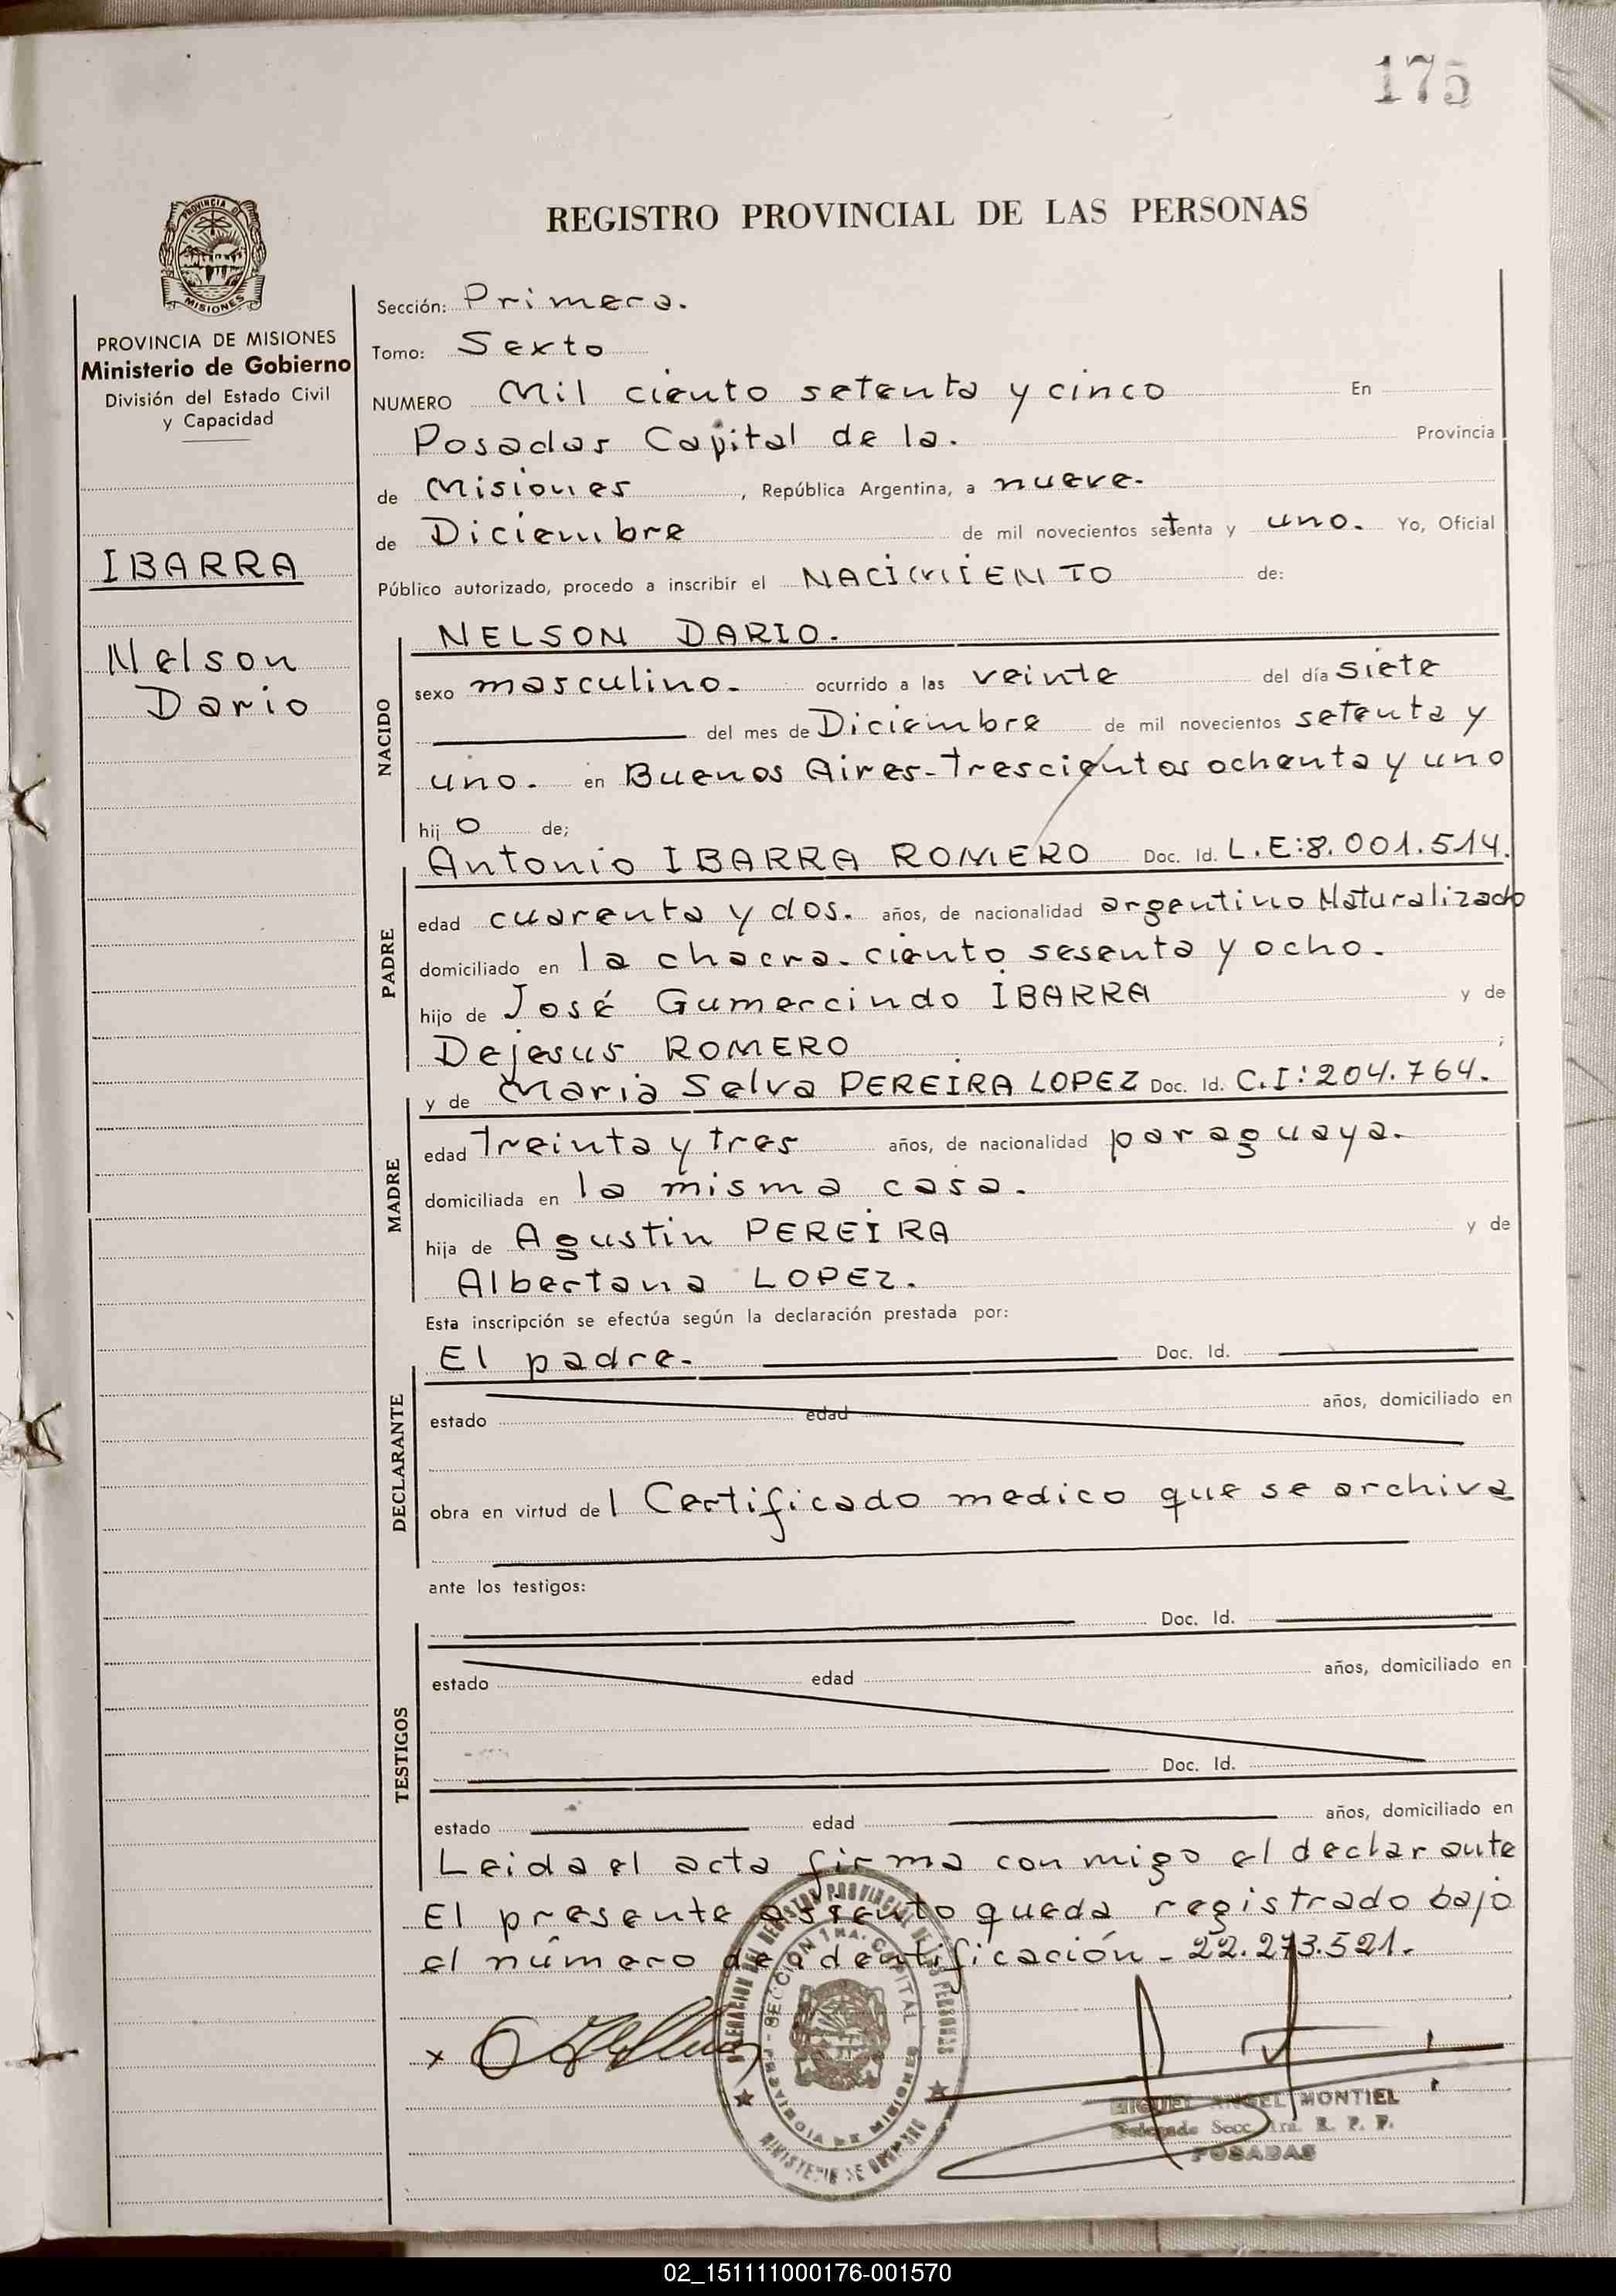 175
REGISTRO PROVINCIAL DE LAS PERSONAS
PROVINCIA DE MISIONES
Ministerio de Gobierno
División del Estado Civil
y Capacidad
IBARRA
Nelson
Dario
Sección: Primera.
Tomo: Sexto
NUMERO Mil ciento setenta y cinco En
Posadas Capital de la. Provincia
de Misiones, República Argentina, a nueve.
de Diciembre de mil novecientos setenta y uno. Yo, Oficial
Público autorizado, procedo a inscribir el NACIMIENTO de:
NACIDO
NELSON DARIO.
sexo masculino. ocurrido a las veinte del día siete
del mes de Diciembre de mil novecientos setenta y
uno. en Buenos Aires-trescientos ochenta y uno
hijo de;
PADRE
Antonio IBARRA ROMERO Doc. Id. L.E:8.001.514.
edad cuarenta y dos. años, de nacionalidad argentino Naturalizado
domiciliado en la chacra. ciento sesenta y ocho.
hijo de José Gumercindo IBARRA y de
Dejesus ROMERO ;
MADRE
y de Maria Selva PEREIRA LOPEZ Doc. Id. C.I:204.764.
edad treinta y tres años, de nacionalidad paraguaya.
domiciliada en la misma casa.
hija de Agustin PEREIRA y de
Albertana LOPEZ.
Esta inscripción se efectúa según la declaración prestada por:
DECLARANTE
El padre. Doc. Id.
estado edad años, domiciliado en
obra en virtud del Certificado medico que se archiva
ante los testigos:
TESTIGOS
Doc. Id.
estado edad años, domiciliado en
Doc. Id.
estado edad años, domiciliado en
Leida el acta firma conmigo el declarante
El presente asiento queda registrado bajo
el número de identificación - 22.273.521.
x
MIGUEL ANGEL MONTIEL
Delegado Secc. 1ra. R. P. P.
POSADAS
02_151111000176-001570